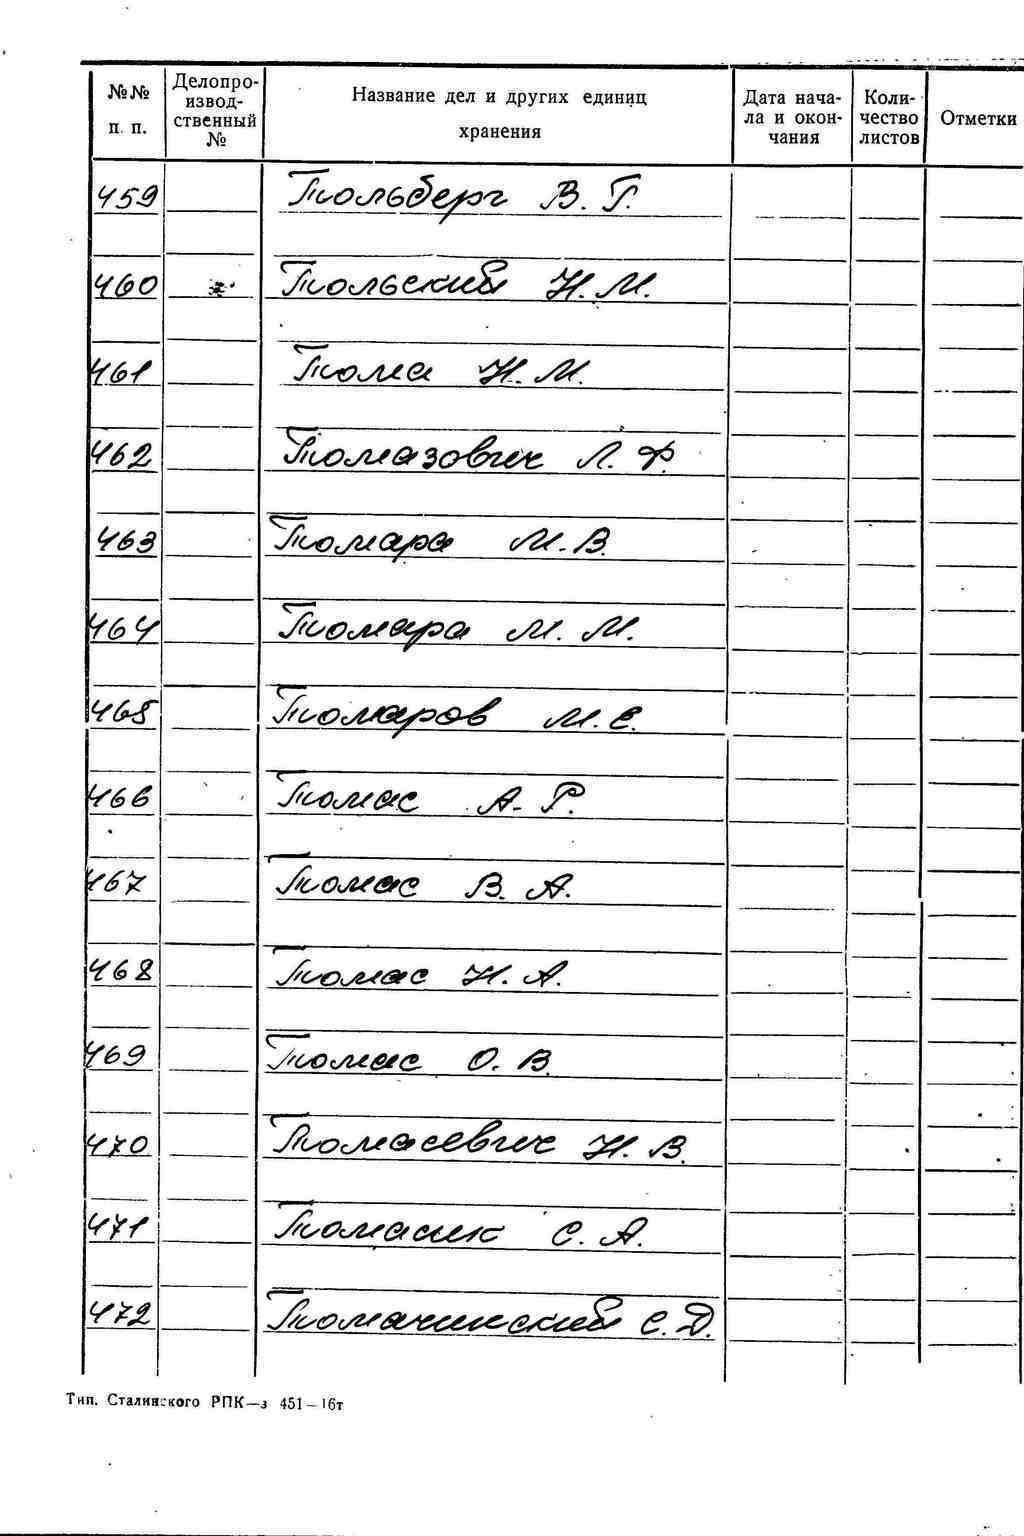 №№ п. п.
Делопро-
извод-
ственный
№
Название дел и других единиц
хранения
Дата нача-
ла и окон-
чания
Коли-
чество
листов
Отметки
459 Гюльберг В. Г.
460 Гюльский Н. М.
461 Гюма Н. М.
462 Гюмазович Л. Ф.
463 Гюмара М. В.
464 Гюмара М. М.
465 Гюмаров М. Е.
466 Гюмас А. Р.
467 Гюмас В. А.
468 Гюмас Н. А.
469 Гюмас О. В.
470 Гюмасевич Н. В.
471 Гюмасик С. А.
472 Гюмачинский С. Д.
Тип. Сталинского РПК—з 451—16т